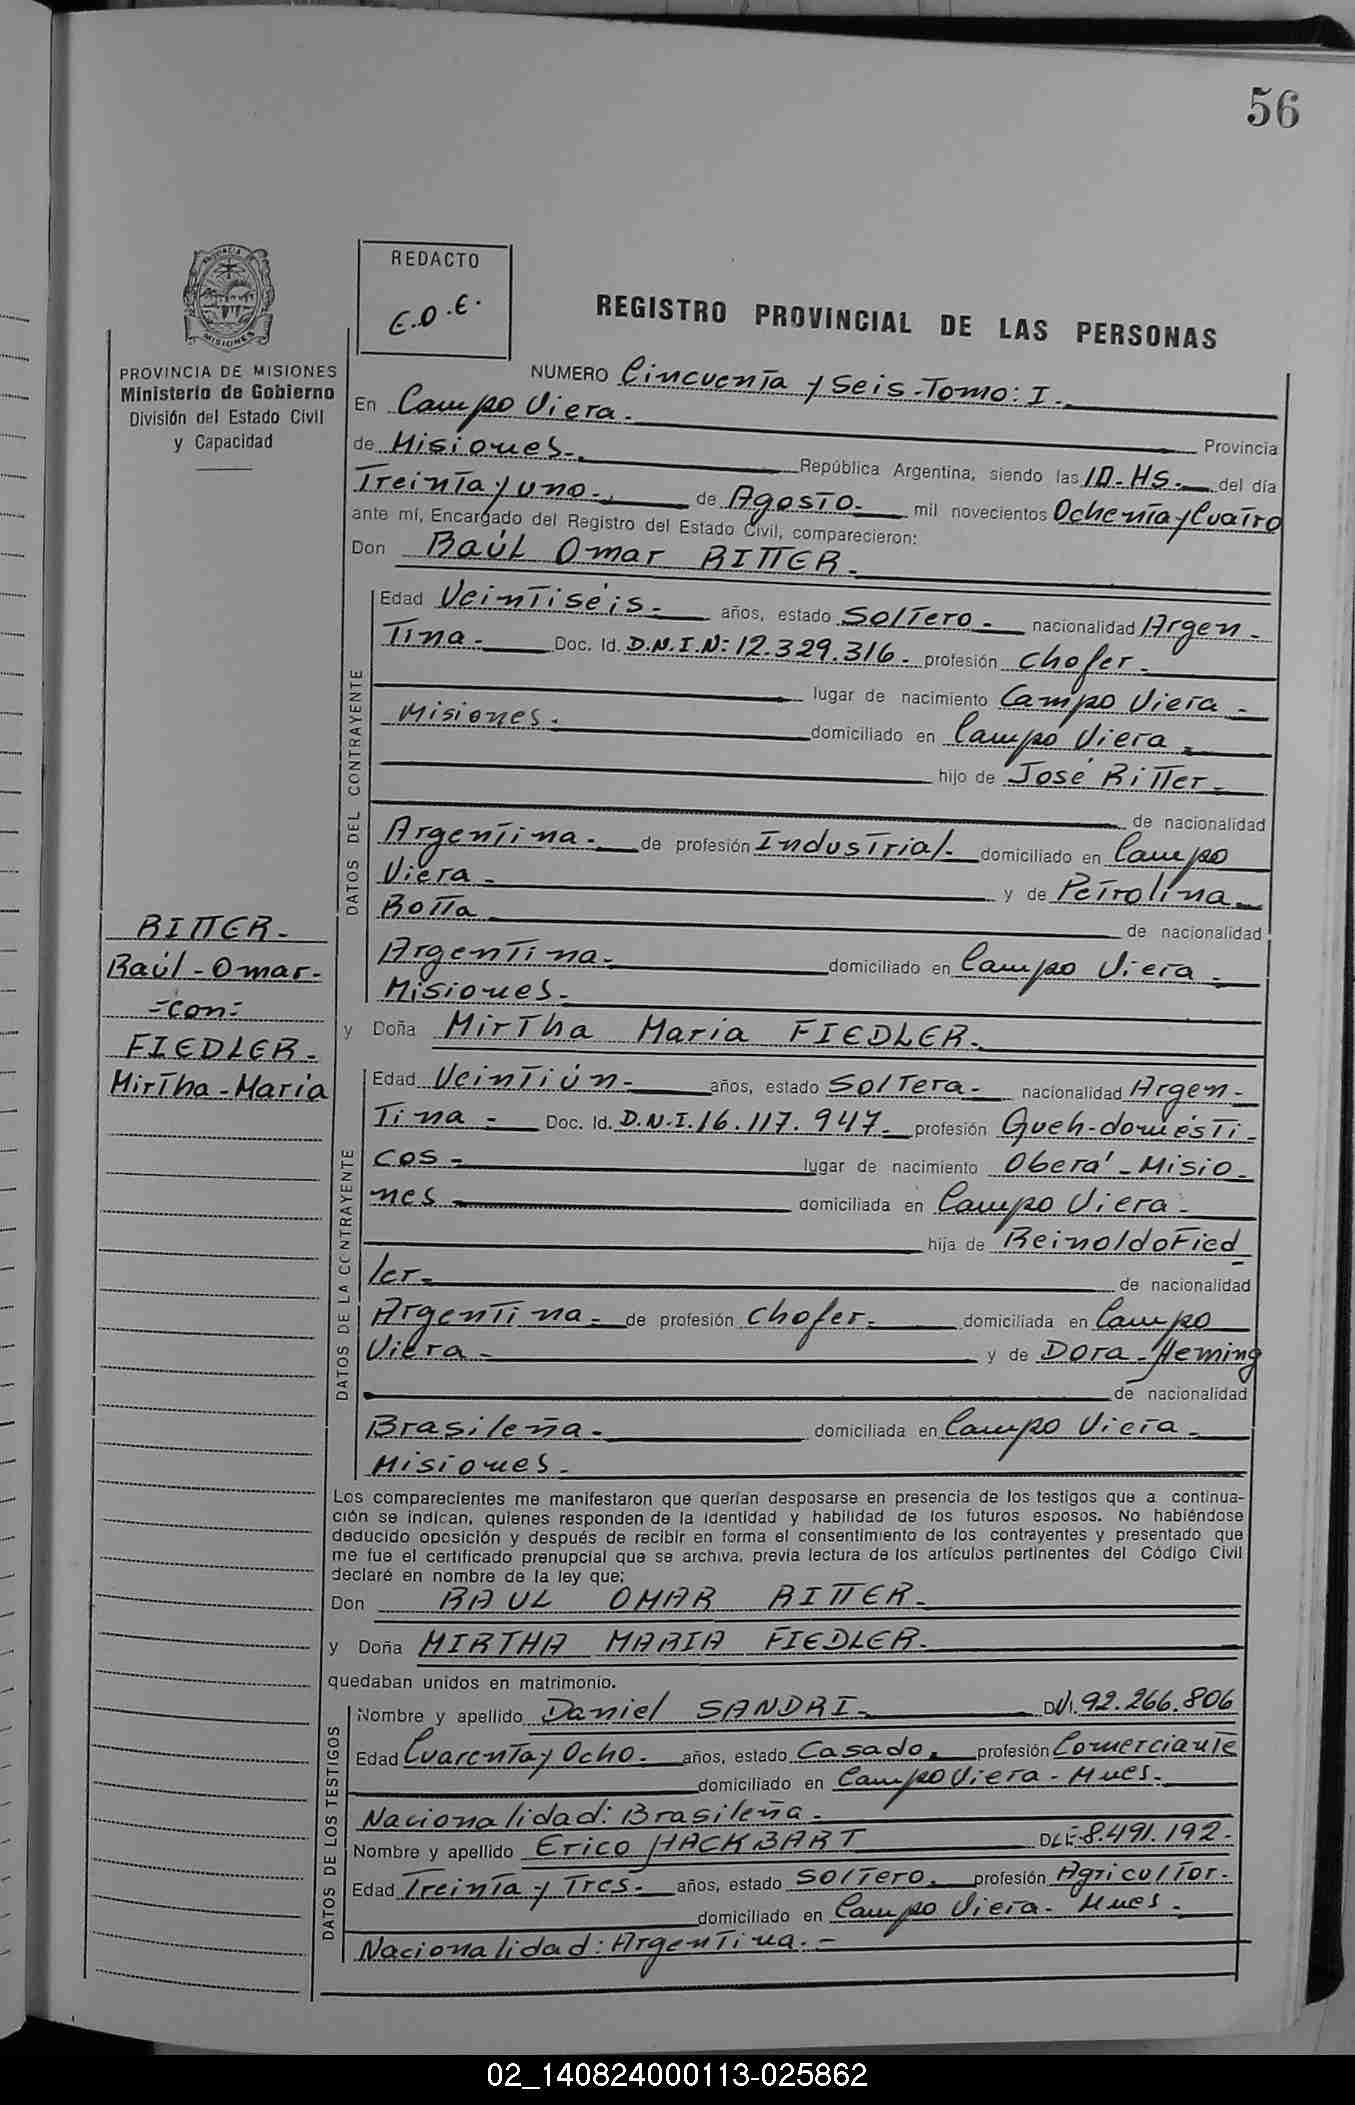 56
PROVINCIA DE MISIONES
Ministerio de Gobierno
División del Estado Civil
y Capacidad
REDACTO
E.O.E.
REGISTRO PROVINCIAL DE LAS PERSONAS
NUMERO Cincuenta y Seis-Tomo: I.
En Campo Viera. Provincia
de Misiones.- República Argentina, siendo las 10-HS.- del día
Treinta y uno.- de Agosto.- mil novecientos Ochenta y Cuatro
ante mí, Encargado del Registro del Estado Civil, comparecieron:
Don Raúl Omar RITTER.-
DATOS DEL CONTRAYENTE
Edad Veintiséis.- años, estado Soltero.- nacionalidad Argen-
Tina.- Doc. Id. D.N.I.N: 12.329.316.- profesión Chofer.-
lugar de nacimiento Campo Viera-
Misiones.- domiciliado en Campo Viera.-
hijo de José Ritter.-
de nacionalidad
Argentina.- de profesión Industrial.- domiciliado en Campo
Viera.- y de Petrolina
Rotta de nacionalidad
Argentina.- domiciliado en Campo Viera.-
Misiones.-
RITTER.-
Raúl-Omar-
=con=
FIEDLER.-
Mirtha-Maria
y Doña Mirtha Maria FIEDLER.-
DATOS DE LA CONTRAYENTE
Edad Veintiún- años, estado Soltera- nacionalidad Argen-
Tina- Doc. Id. D.N.I. 16.117.947.- profesión Queh-domésti-
cos- lugar de nacimiento Oberá-Misio-
nes domiciliada en Campo Viera-
hija de Reinoldo Fied
ler- de nacionalidad
Argentina- de profesión Chofer.- domiciliada en Campo
Viera- y de Dora-Heming
de nacionalidad
Brasileña- domiciliada en Campo Viera-
Misiones-
Los comparecientes me manifestaron que querían desposarse en presencia de los testigos que a continua-
ción se indican, quienes responden de la identidad y habilidad de los futuros esposos. No habiéndose
deducido oposición y después de recibir en forma el consentimiento de los contrayentes y presentado que
me fue el certificado prenupcial que se archiva, previa lectura de los artículos pertinentes del Código Civil
declaré en nombre de la ley que:
Don RAUL OMAR RITTER.-
y Doña MIRTHA MARIA FIEDLER.-
quedaban unidos en matrimonio.
DATOS DE LOS TESTIGOS
Nombre y apellido Daniel SANDRI.- 92.266.806
Edad Cuarenta y Ocho.- años, estado Casado.- profesión Comerciante
domiciliado en Campo Viera-Mnes.-
Nacionalidad: Brasileña.-
Nombre y apellido Erico HACKBART 8.491.192.-
Edad Treinta y Tres.- años, estado Soltero.- profesión Agricultor.-
domiciliado en Campo Viera-Mnes.-
Nacionalidad: Argentina.-
02_140824000113-025862